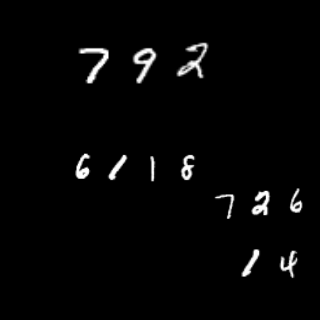 792
6118
726
14